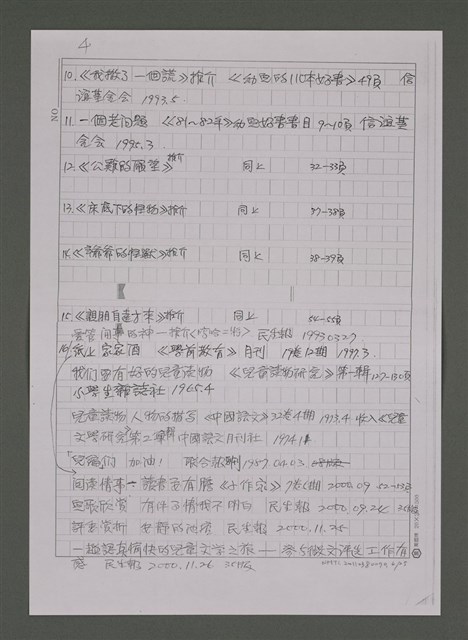 4
NO
10.《我撒了一個謊》推介 《幼兒的110本好書》49頁 信
誼基金会 1993.5.
11.一個老問題 《81~82年》幼兒好書書目 9~10頁 信誼基
金会 1995.3.
12.《公雞的願望》推介 同上 32-33頁
13.《床底下的怪物》推介 同上 37-38頁
14.《爺爺的怪獸》推介 同上 38-39頁
15.《親朋自遠方來》推介 同上 54-55頁
愛管閒事的神－推介 民生報 19930327
16.紙上家家酒 《學前教育》月刊 19卷12期 1997.3.
我們要有好的兒童讀物 《兒童讀物研究》第一輯 127-130頁
小學生雜誌社 1965.4
兒童讀物人物的描写《中國語文》32卷4期 1973.4 收入《兒童
文學研究》第二輯 中國語文月刊社 1974.11
「兒編」們 加油! 聯合報 1987.04.03.
閱讀情事－讀書更有勝《小作家》7卷5期 2000.09 52-53頁
民生報 2000.09.24
評審賞析 安靜的 民生報 2000.11.25
一趟認真愉快的兒童文學之旅——參与徵文評選工作有
感 民生報 2000.11.26